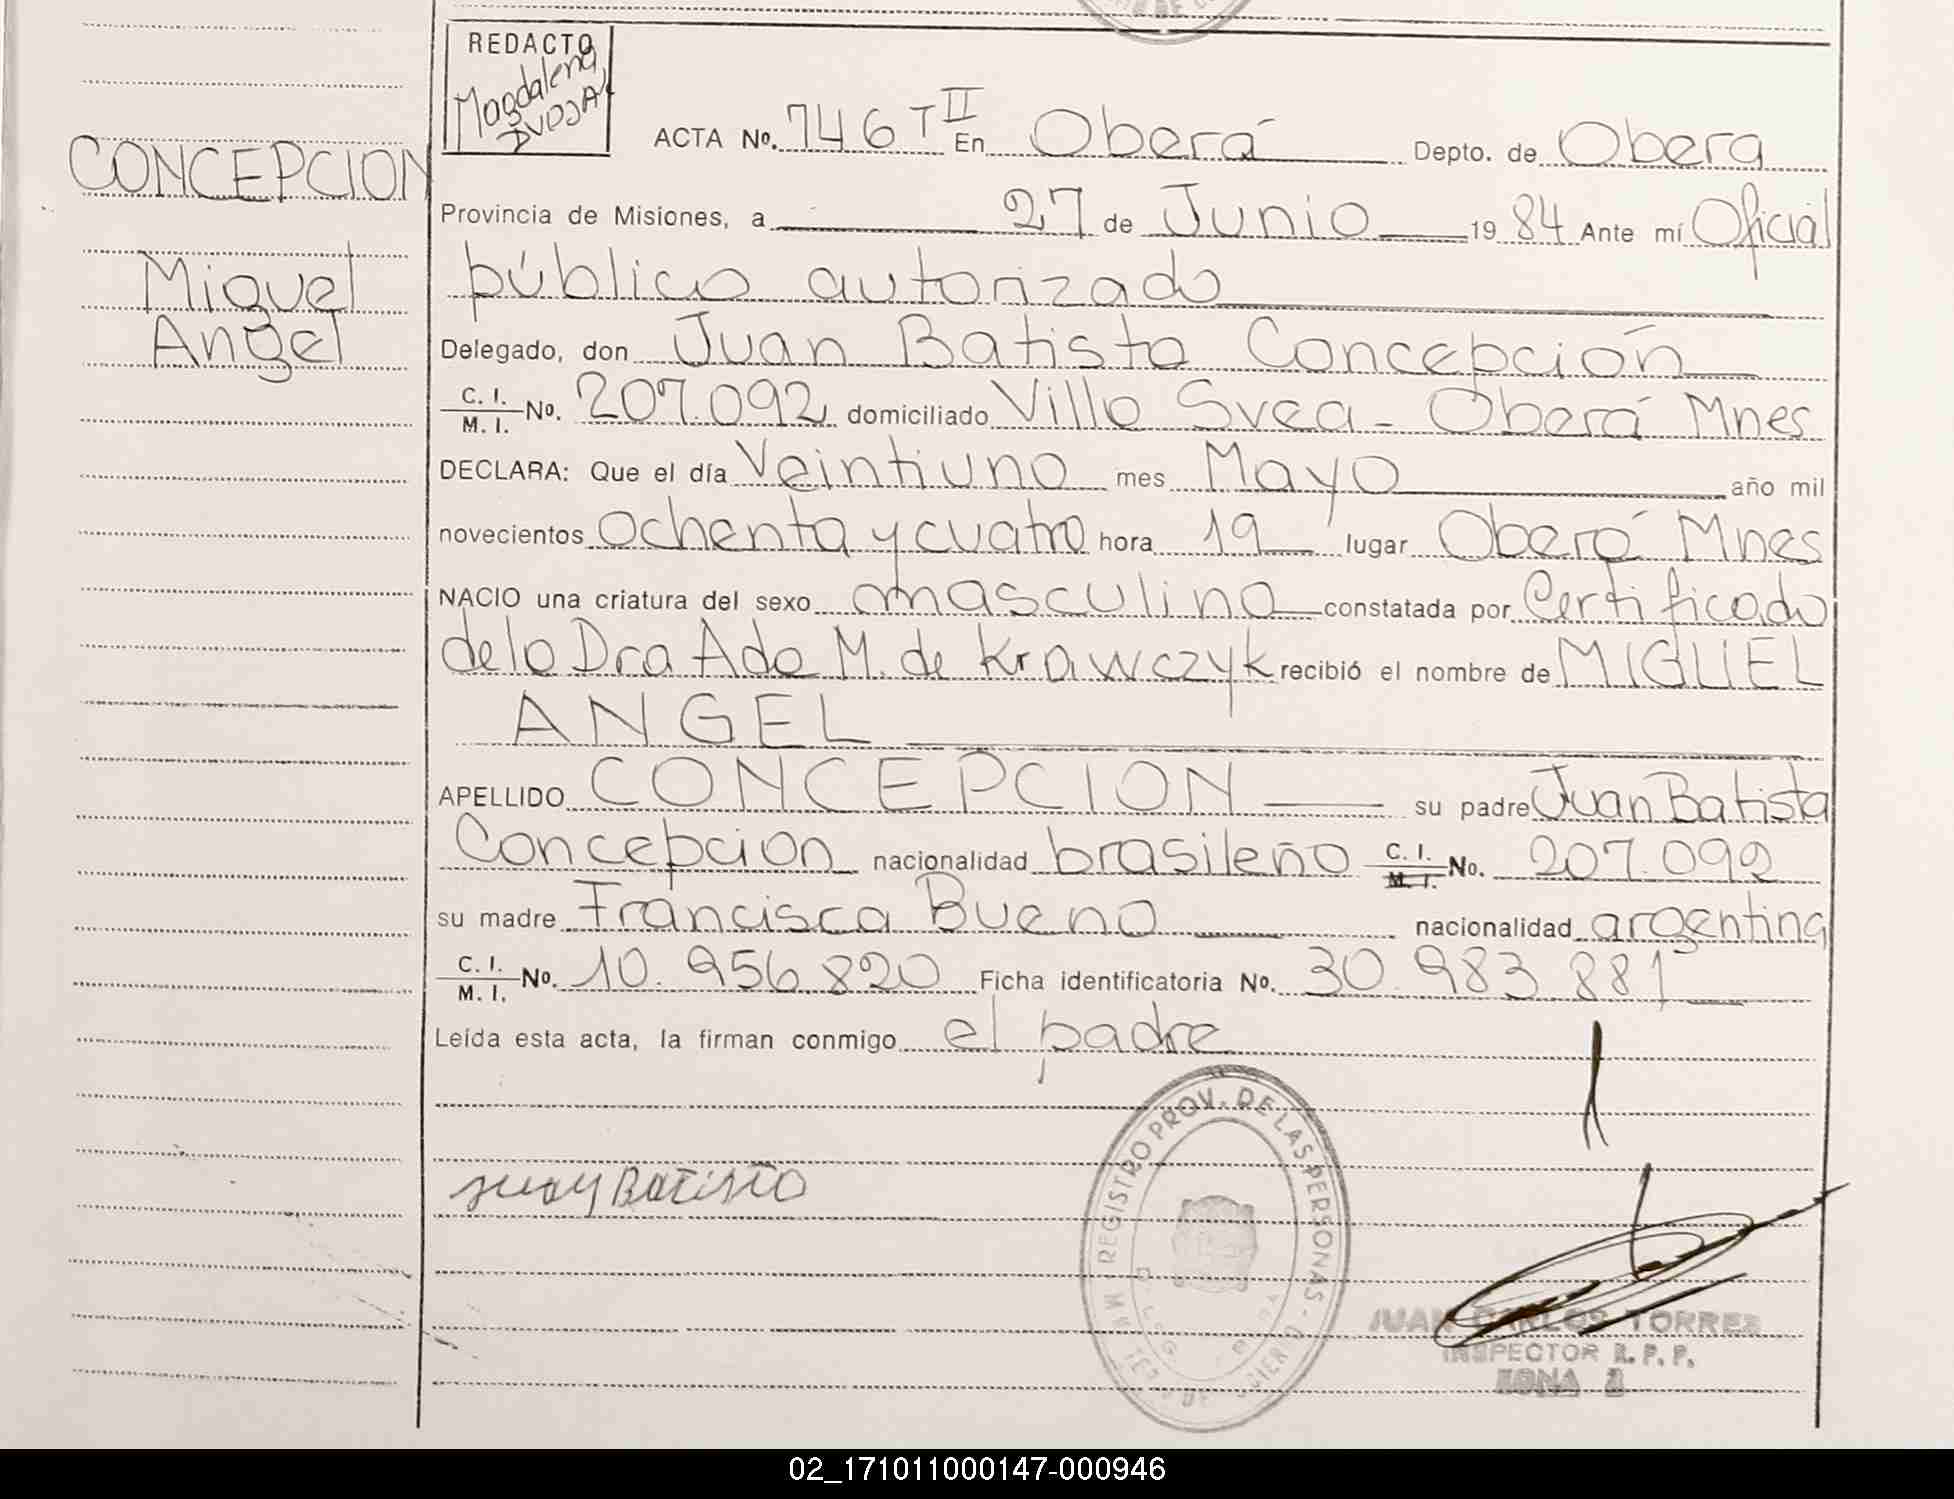 REDACTO
Magdalena
DVOJAK
CONCEPCION
Miguel
Angel
ACTA Nº. 746 T II En Oberá Depto. de Obera
Provincia de Misiones, a 27 de Junio 1984 Ante mí Oficial
público autorizado
Delegado, don Juan Batista Concepción
C. I. M. I. Nº. 207.092 domiciliado Villa Svea - Oberá Mnes
DECLARA: Que el día Veintiuno mes Mayo año mil
novecientos ochenta y cuatro hora 19 lugar Oberá Mnes
NACIO una criatura del sexo masculino constatada por Certificado
de la Dra Ada M. de Krawczyk recibió el nombre de MIGUEL
ANGEL
APELLIDO CONCEPCION su padre Juan Batista
Concepcion nacionalidad brasileño C. I. M. I. Nº. 207.092
su madre Francisca Bueno nacionalidad argentina
C. I. M. I. Nº. 10.956.820 Ficha identificatoria Nº. 30.983.881
Leída esta acta, la firman conmigo el padre
REGISTRO PROV. DE LAS PERSONAS
Juan Batista
JUAN CARLOS TORRES
INSPECTOR R. P. P.
ZONA 2
02_171011000147-000946